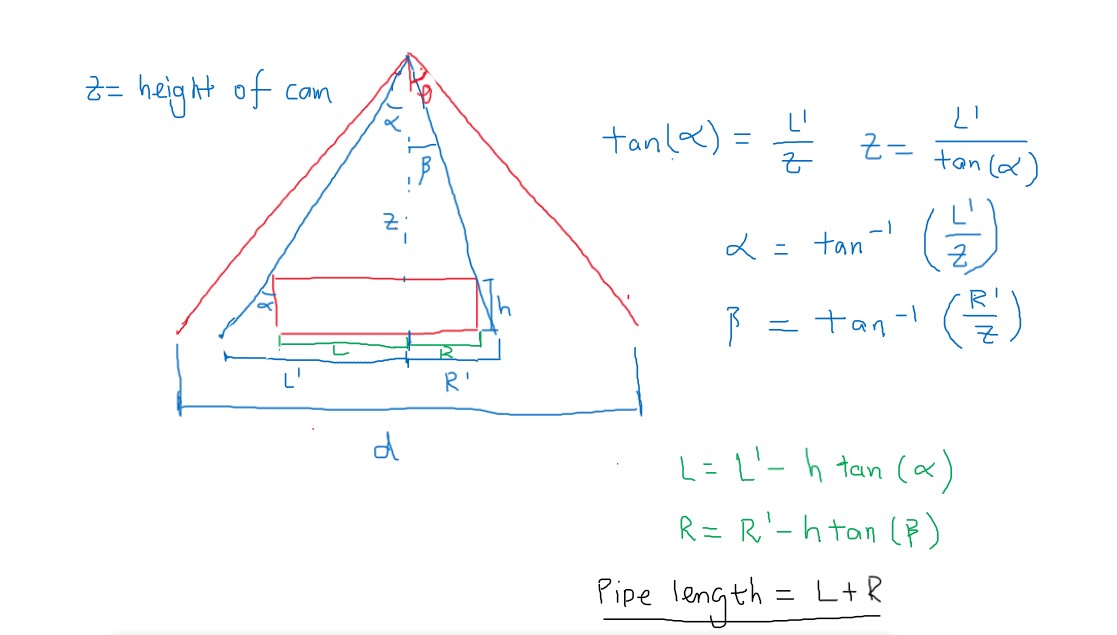 z = height of cam
θ
α
β
z
α
h
L
R
L'
R'
d
tan(α) = L'/z   z = L'/tan(α)
α = tan⁻¹ (L'/z)
β = tan⁻¹ (R'/z)
L = L' - h tan (α)
R = R' - h tan (β)
Pipe length = L + R